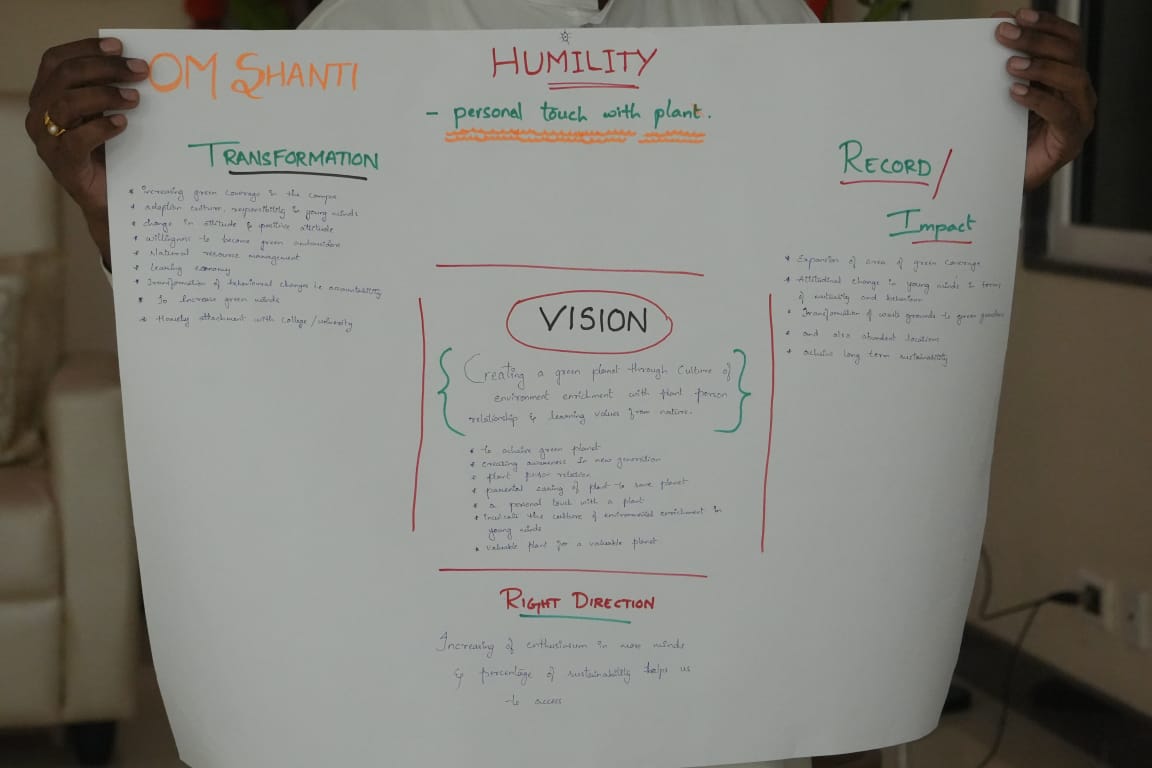 OM SHANTI
HUMILITY
- personal touch with plant.
TRANSFORMATION
* increasing green coverage in the campus
* adoption culture, responsibility in young minds
* change in attitude & positive attitude
* willigness to become green ambassidors
* National resource management
* learning economy
* Transformation of behavioural changes i.e accountability
* To Increase green minds
* Homely attachment with College / university
RECORD /
Impact
* Expansion of area of green coverage
* Attitudinal change in young minds in terms
of maturity and behaviour
* Transformation of waste grounds to green
* and also abundant locations
* achieve long term sustainability
VISION
{ Creating a green planet through Culture of
environment enrichment with plant person
relationship & learning values from nature. }
* to achieve green planet
* creating awareness in new generation
* plant person relation
* parental caring of plant to save planet
* a personal touch with a plant
* Inculcate the culture of environmental enrichment in
young minds
* valuable plant for a valuable planet
RIGHT DIRECTION
Increasing of enthusiasm in more minds
& percentage of sustainability helps us
to access